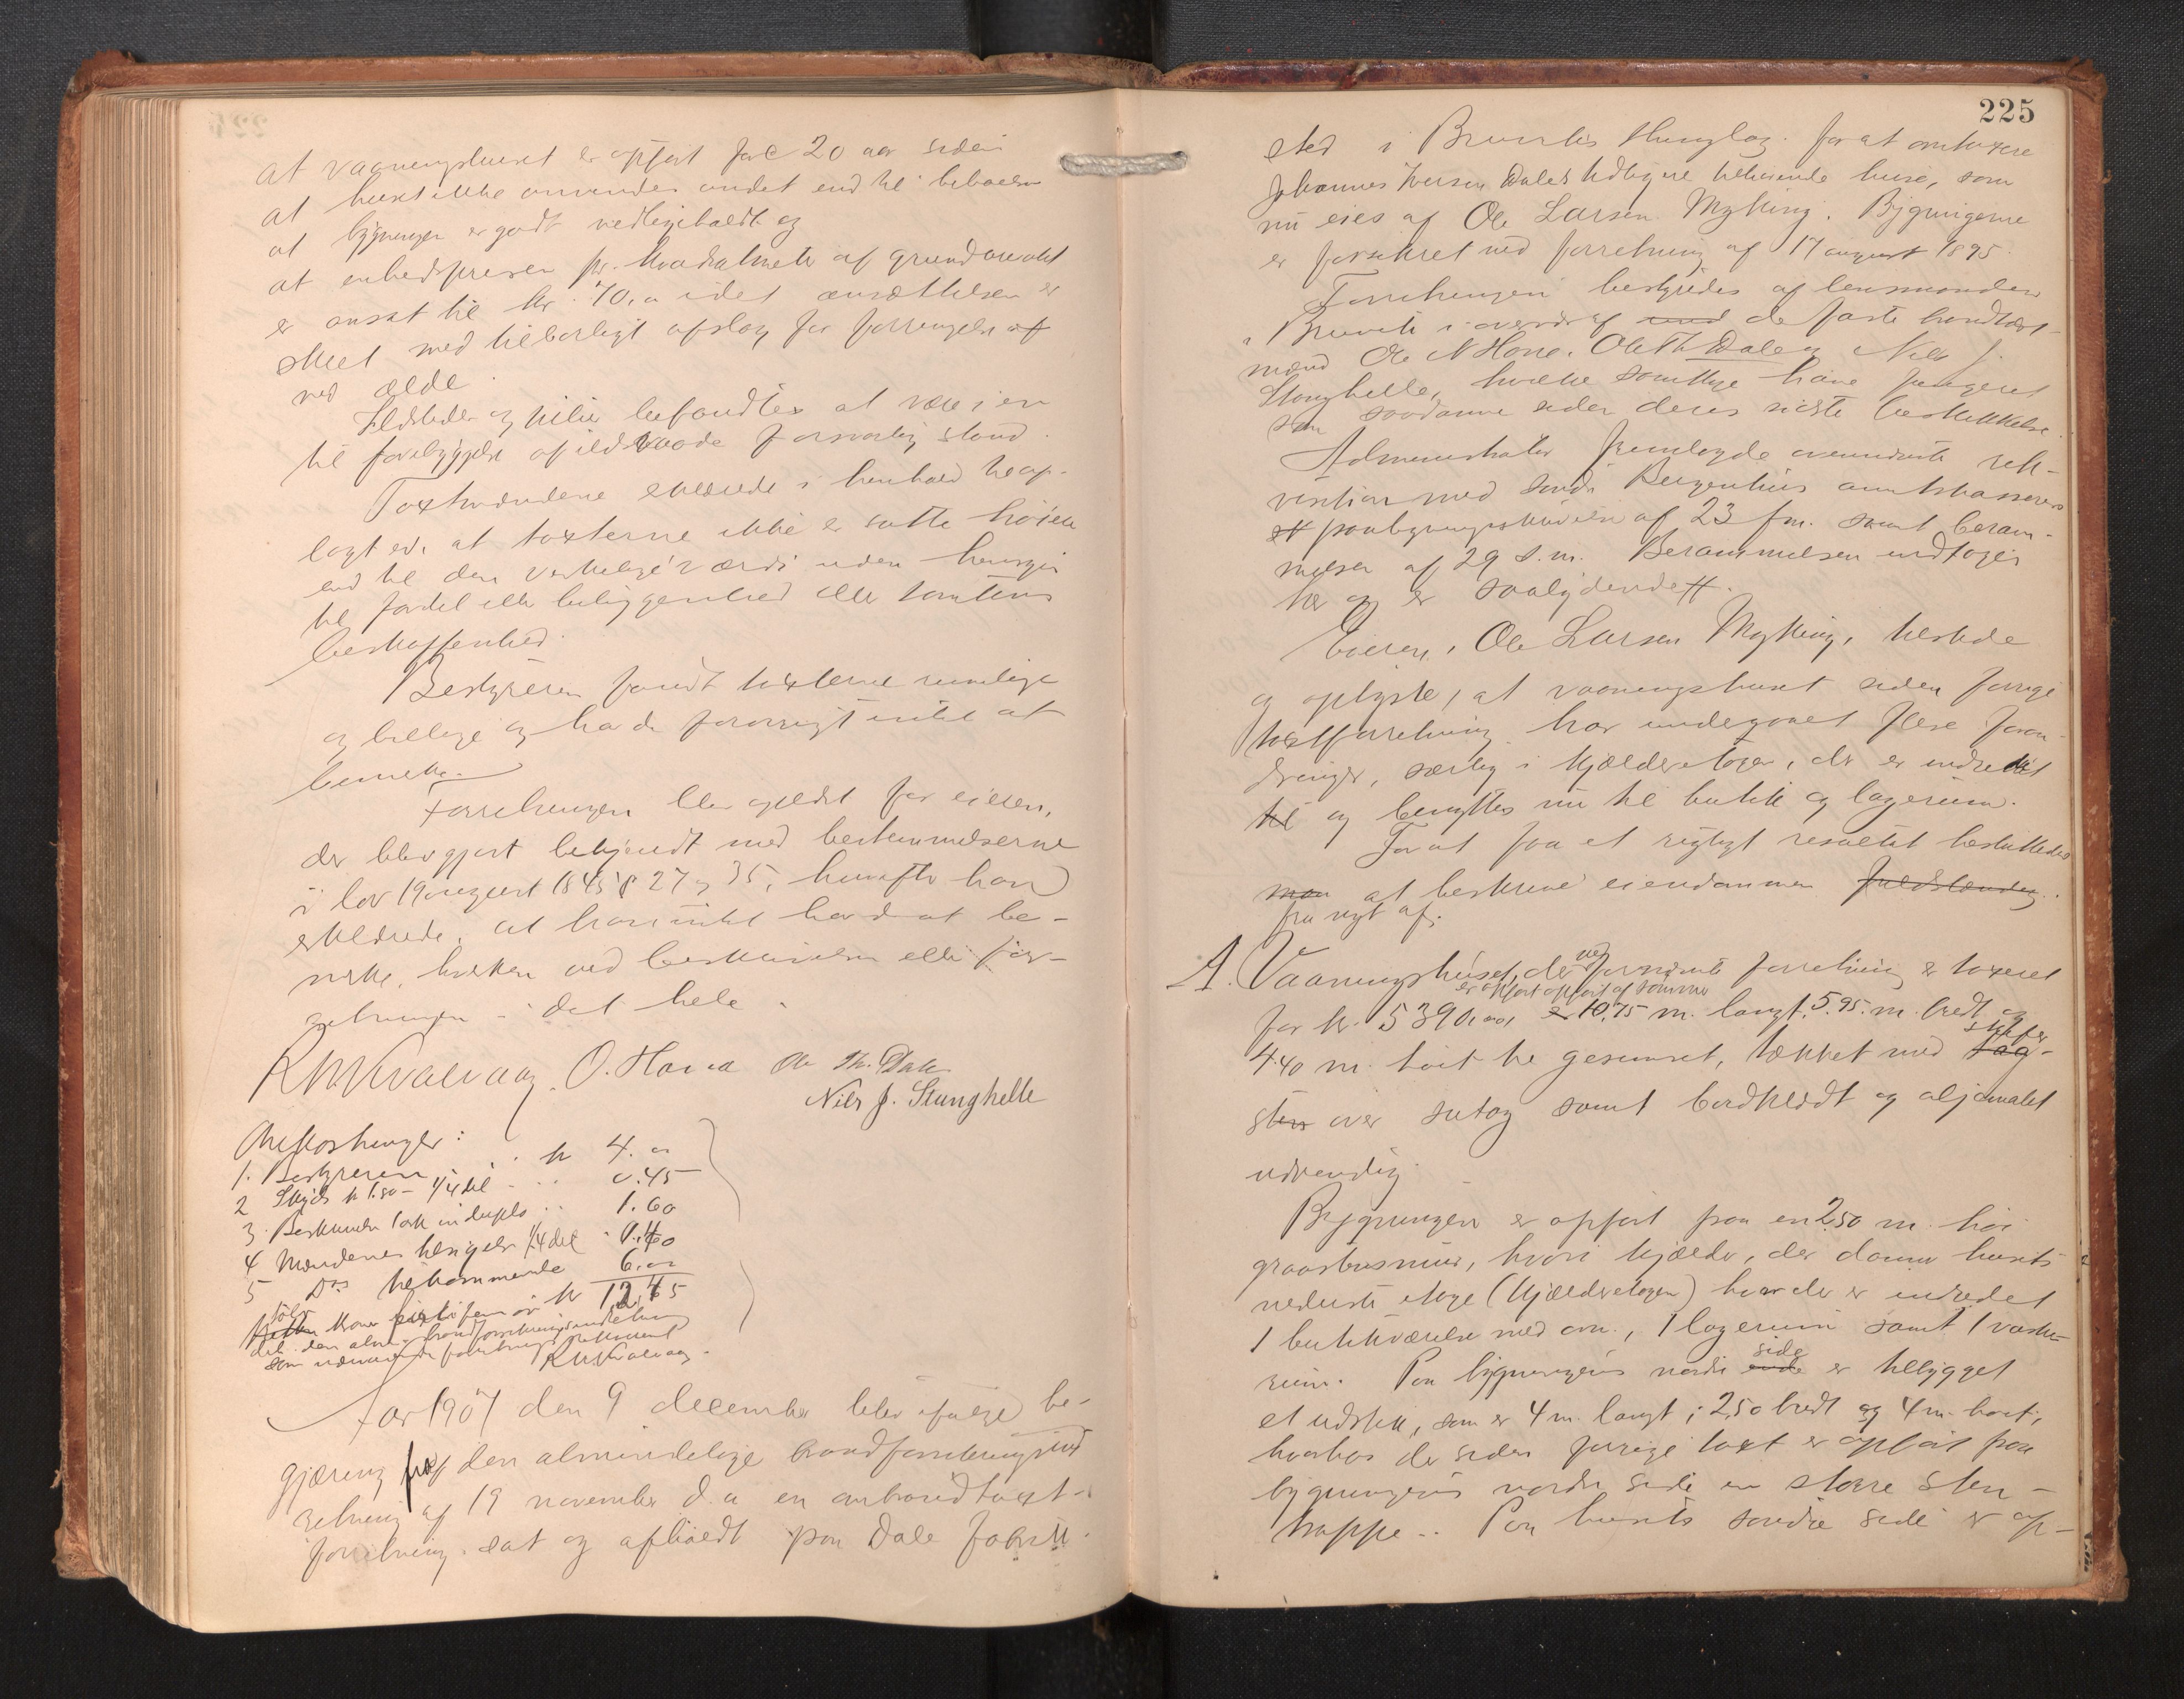 at vaaningshuset er opført for c 20 aar siden
at huset ikke anvendes andet end til beboelse
at bygningen er godt vedligeholdt og
at enhedsprisen pr. kvadratmeter af grundarealet
er ansat til kr. 70,00 idet ansættelsen er
skeet med tilbørligt afslag for forringelse af
ved ælde.
Ildsteder og piber befandtes at være i en
til forebyggelse af ildsvaade forsvarlig stand.
Taxtmændene erklærede i henhold til af-
lagt ed, at taxterne ikke er satte høiere
end til den virkelige værdi uden hensyn
til fordel eller beliggenhed eller tomtens
beskaffenhed.
Bestyreren fandt taxterne rimelige
og billige og havde forøvrigt intet at
bemerke.
Forretningen blev oplæst for eieren,
der blev gjort bekjendt med bestemmelserne
i lov 19 august 1845 § 27 og 35, hvorefter han
erklærede, at han intet havde at be-
merke, hverken ved beskrivelsen eller for-
retningen i det hele.
R Kvalvaag. O. Horne Ole Th. Dale
Niels J. Stanghelle
Omkostninger:
1. Bestyreren . . kr 4.00
2 Skyds kr 1.80 – 1/4 del . . . 0.45
3. Beskrivelse talt in duplo . . 1.60
4 Mændenes tilsigelse 1/4 del . 0.40
5 Do tilkommende 6.00
kr 12.45
tolv kroner firti fem øre
den alm. brandforsikringsindretning
som
R Kvalvaag.
Aar 1907 den 9 december blev ifølge be-
gjæring af den almindelige brandforsikringsind
retning af 19 november d.a. en ombrandtaxt-
forretning sat og afholdt paa Dale fabrik
225
sted i Bruvik thinglag for at omtaxere
Johannes Iversen Dales tilhørende huse, som
nu eies af Ole Larsen Myking. Bygningerne
er forsikret ved forretning af 17 august 1895.
Forretningen bestyredes af lensmanden
i Bruvik i overvær af med de faste brandtaxt-
mænd Ole N Horne, Ole Th Dale og Nils J.
Stanghelle, hvilke samtlige have fungeret
som saadanne siden deres sidste beskikkelse.
Administrator fremlagde ovennævnte rek-
visition med Søndre Bergenhus amtskasserers
paategning af 23 f.m. samt beram-
melsen af 29 s.m. Berammelsen indtages
her og er saalydende #.
Eieren, Ole Larsen Myking, tilstede
og oplyste, at vaaningshuset siden forrige
taxtforretning har undergaaet flere foran-
dringer, særlig i kjælderetagen, der er indredet
til og benyttes nu til butik og lagerrum.
For at faa et rigtigt resultat besluttedes
man at beskrive eiendommen fuldstændig.
fra nyt af.
A. Vaaningshuset, der ved forrige forretning er taxeret
er opført af tømmer
for kr. 5390,00, er 10,75 m. langt, 5.95. m. bredt og
skifer
4.40 m. høit til gesimset, tækket med tag-
sten over sutag samt bordklædt og oljemalet
udvendig.
Bygningen er opført paa en 2,50 m. høi
graastensmur, hvori kjælder, der danner husets
nederste etage (kjælderetagen) hvor der er indredet
1 butikværelse med ovn, 1 lagerrum samt 1 vaske-
side
rum. Paa bygningens nordre ende er tilbygget
et udstik, som er 4 m. langt, 2,50 bredt og 4 m. høit,
hvorhos der siden forrige taxt er opført paa
bygningens nordre side en større sten-
trappe. Paa husets søndre side er op-